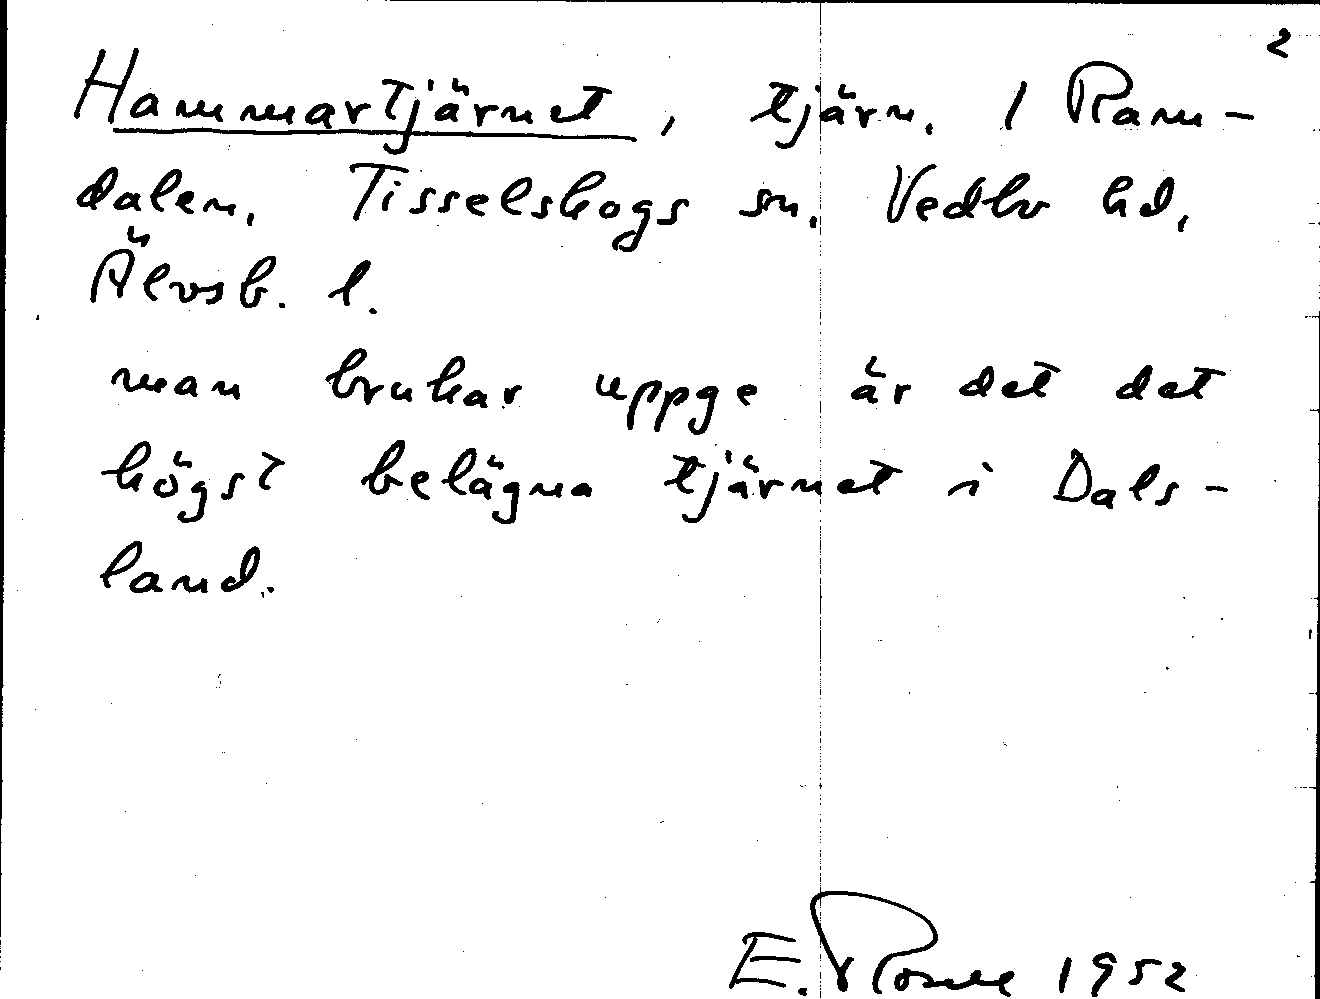 2
Hammartjärnet, tjärn. 1 Ram-
dalen, Tisselskogs sn. Vedbo hd,
Älvsb. l.
man brukar uppge är det det
högst belägna tjärnet i Dals-
land.
E. 1952